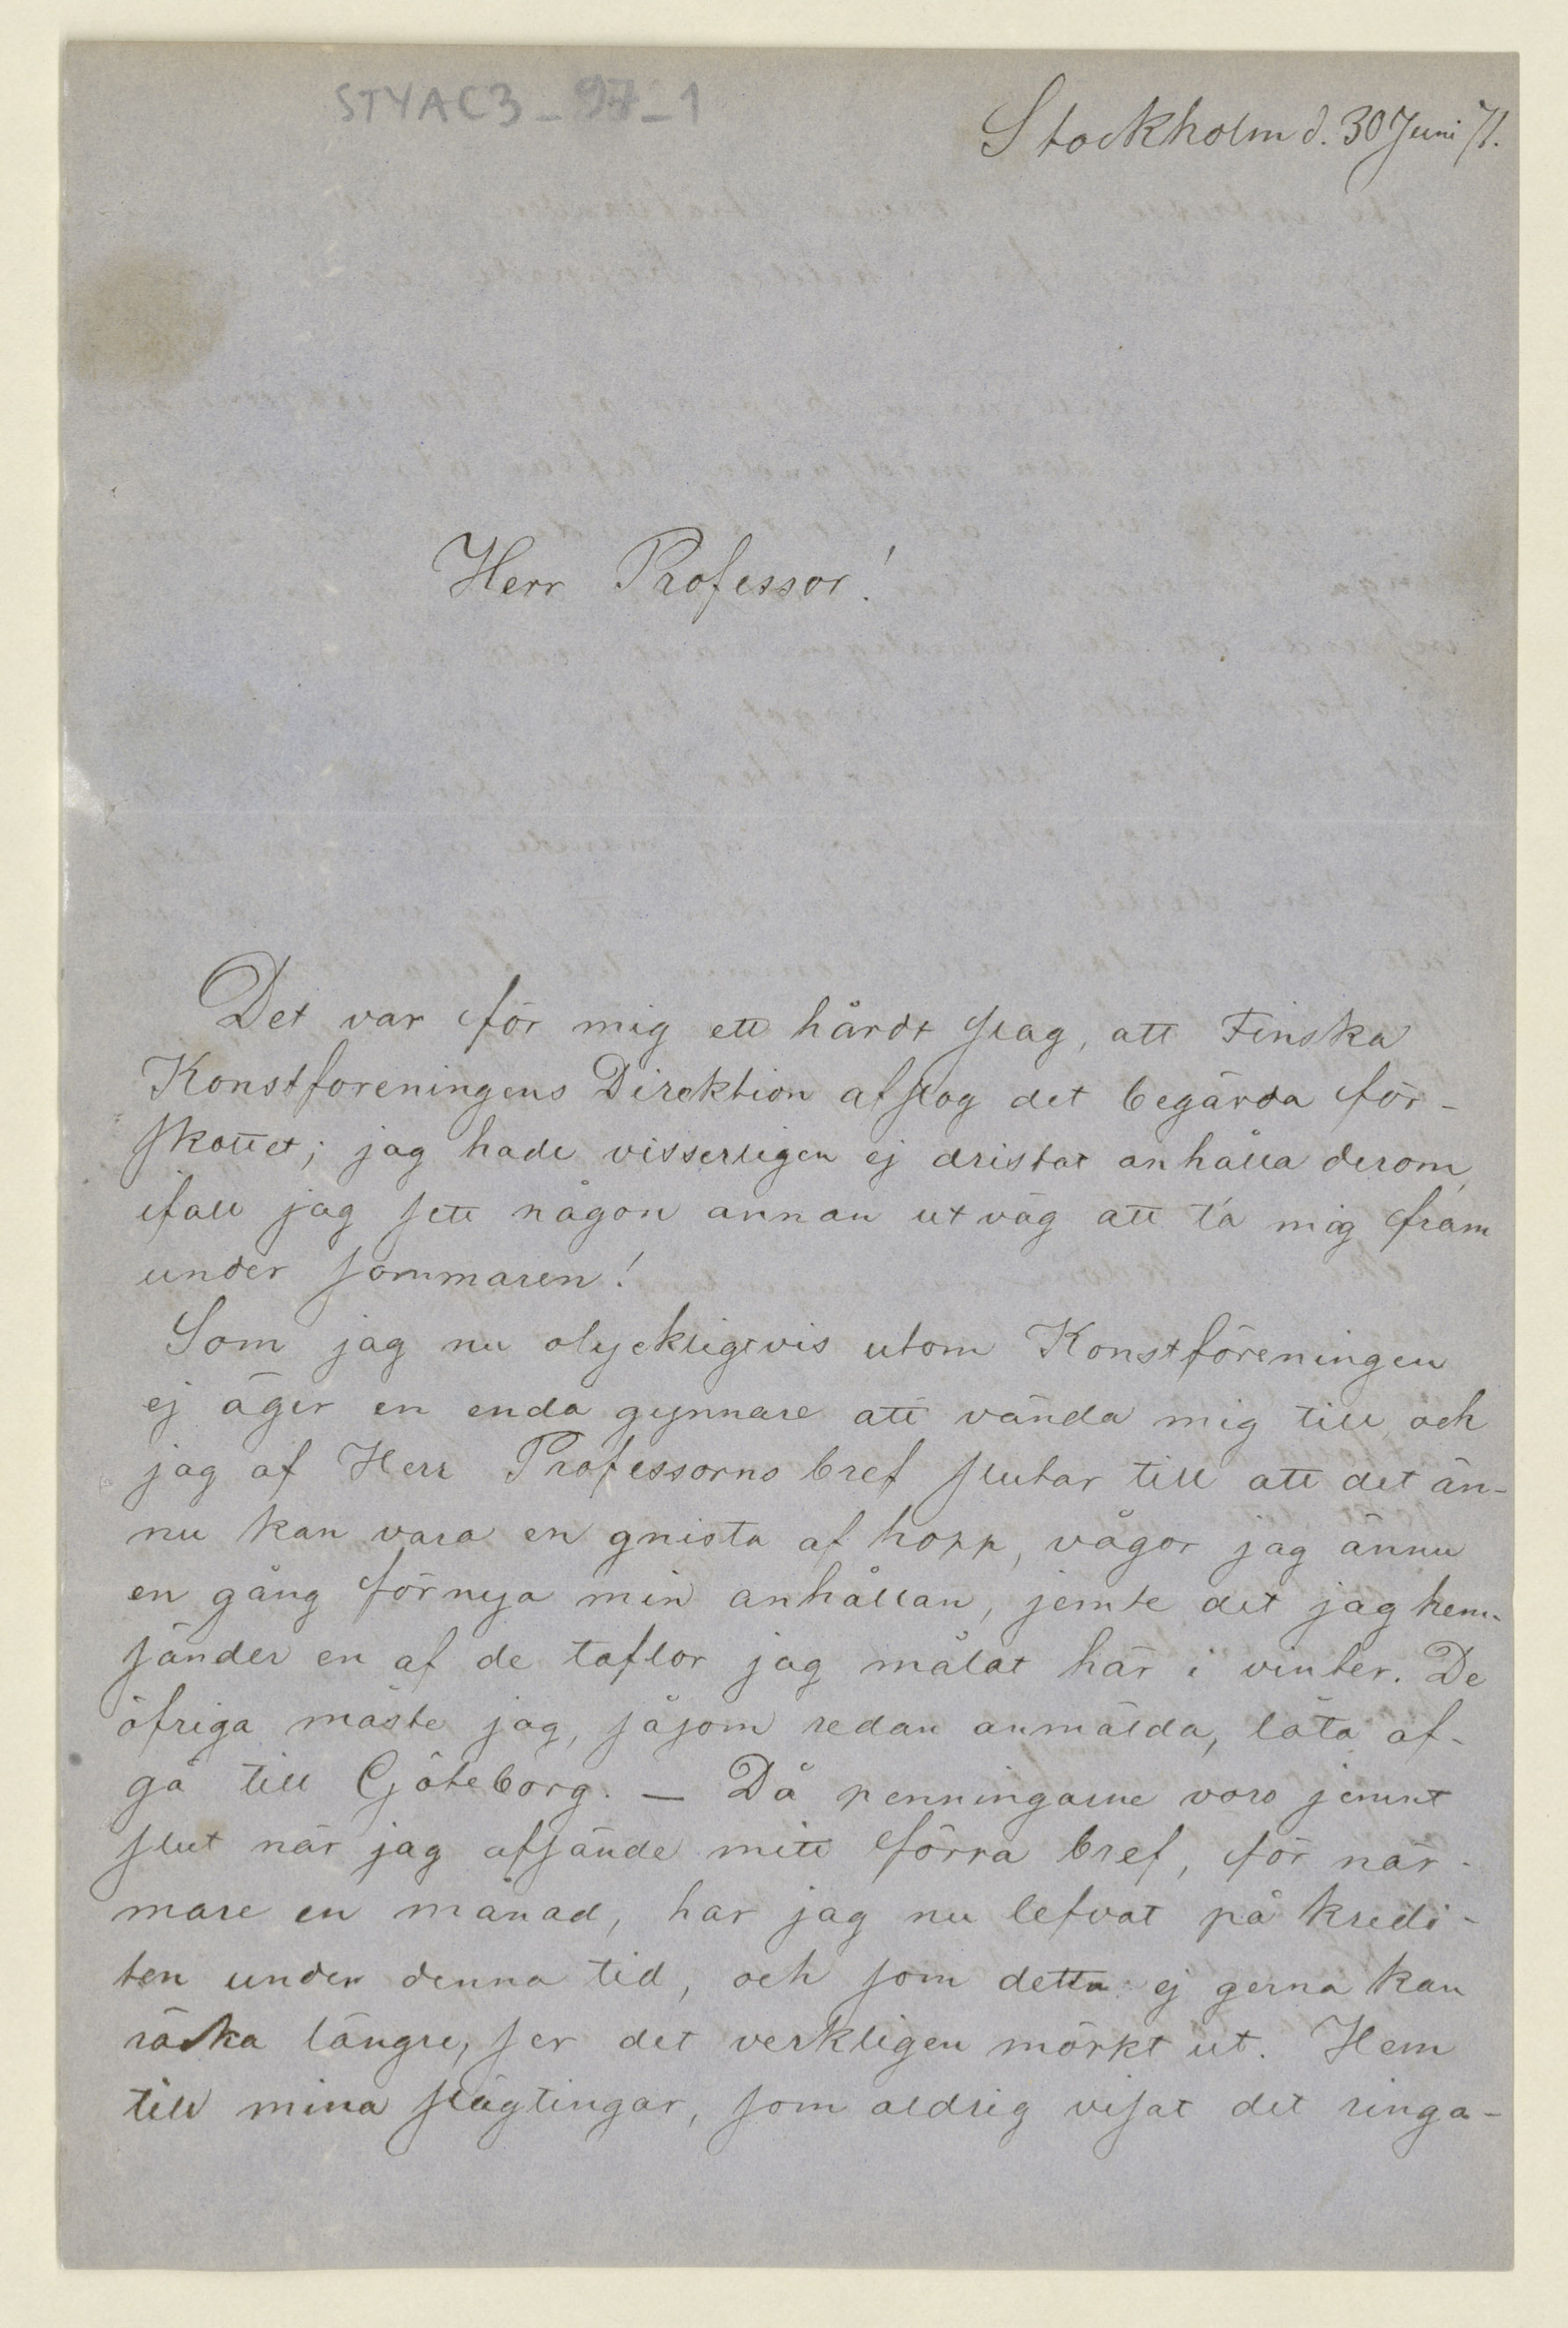 STYAC3_97_1
Stockholm d. 30 Juni 71.
Herr Professor!
Det var för mig ett hårdt slag, att Finska
Konstforeningens Direktion afslog det begärda för-
skottet; jag hade visserligen ej dristat anhålla derom,
ifall jag sett någon annan utväg att ta mig fram
under sommaren!
Som jag nu olyckligtvis utom Konstföreningen
ej äger en enda gynnare att vända mig till, och
jag af Herr Professorns bref slutar till att det än-
nu kan vara en gnista af hopp, vågar jag ännu
en gång förnya min anhållan, jemte det jag hem-
sänder en af de taflor jag målat här i vinter. De
öfriga måste jag, såsom redan anmälda, låta af-
gå till Göteborg. — Då penningarne voro jemnt
slut när jag afsände mitt förra bref, för när-
mare en månad, har jag nu lefvat på kredi-
ten under denna tid, och som detta ej gerna kan
räcka längre, ser det verkligen mörkt ut. Hem
till mina slägtingar, som aldrig visat det ringa-